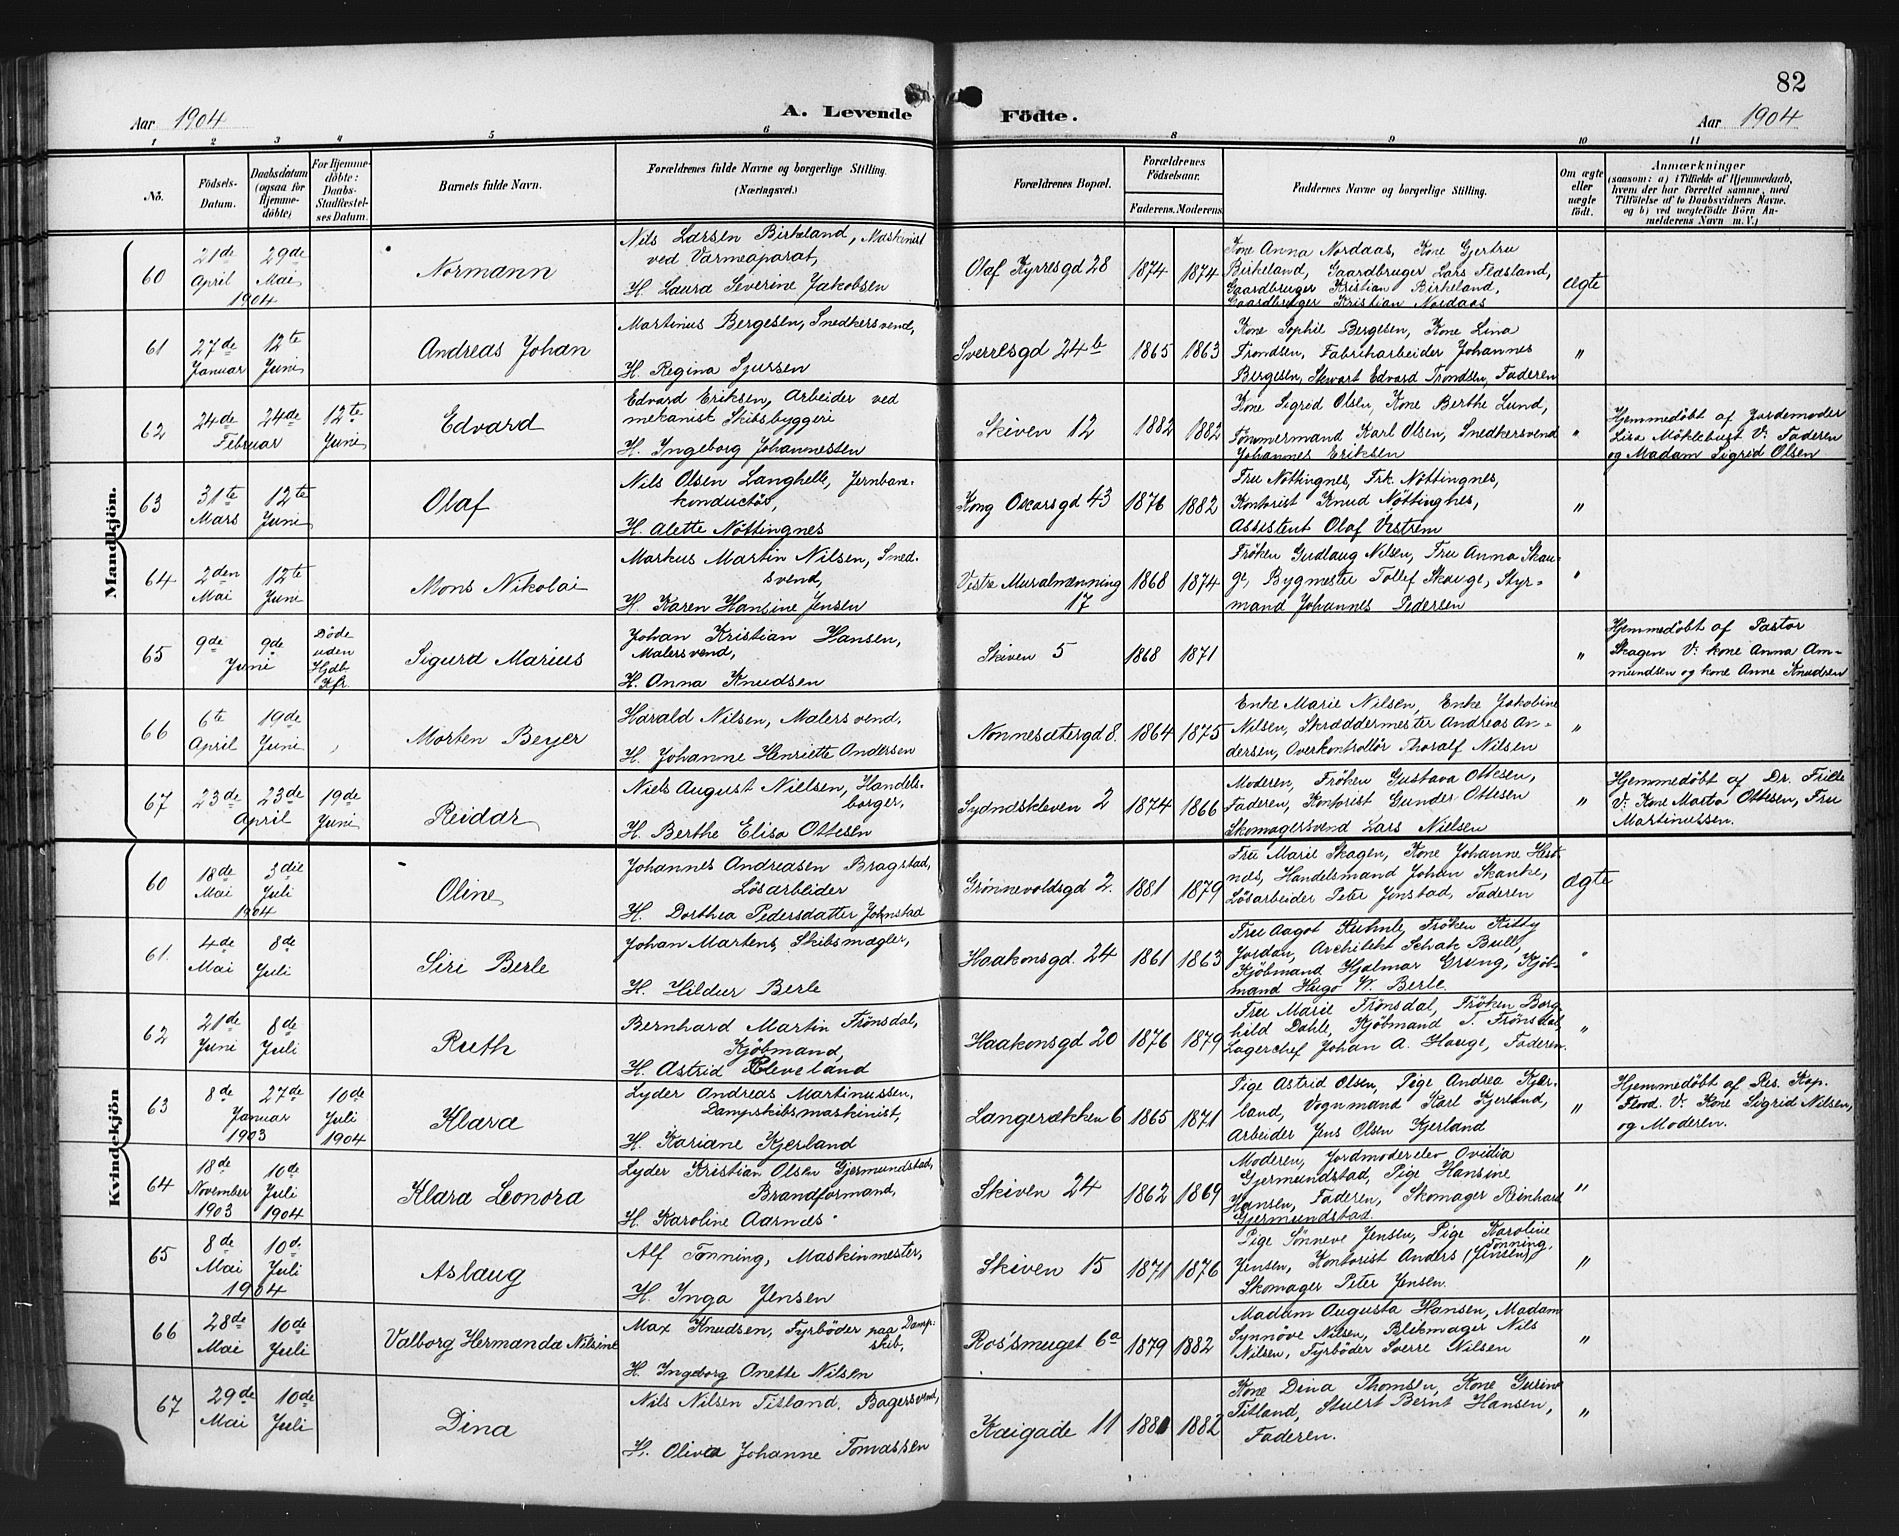 82
Aar 1904
A. Levende
Födte.
Aar 1904
1 2 3 4 5 6 8 9 10 11
No.
Födsels-
Datum.
Daabsdatum
(ogsaa for
Hjemme-
döbte)
For Hjemme-
döbte:
Daabs-
Stadfæstel-
ses Datum.
Barnets fulde Navn.
Forældrenes fulde Navne og borgerlige Stilling.
(Næringsvei.)
Forældrenes Bopæl.
Forældrenes
Födselsaar.
Faderens. Moderens.
Faddernes Navne og borgerlige Stilling.
Om ægte
eller
uægte
födt.
Anmærkninger
(saasom: a) i Tilfælde af Hjemmedaab,
hvem der har forrettet samme, med
Tilföielse af to Daabsvidners Navne.
og b) ved uægtefödte Börn An-
melderens Navn m. V.)
Mandkjön.
60
21de April 1904
29de Mai
Normann
Nils Larsen Birkeland, Maskinist
ved Varmeaparat,
H. Laura Severine Jakobsen
Olaf Kyrresgd 28
1874
1874
Kone Anna Nordaas, Kone Gjertru
Birkeland, Gaardbruger Lars Flæsland,
Gaardbruger Kristian Birkeland,
Gaardbruger Kristian Nordaas
ægte
61
27de Januar
12te Juni
Andreas Johan
Martinus Bergesen, Snedkersvend,
H. Regina Sjursen
Sverresgd 24b
1865
1863
Kone Sophie Bergesen, Kone Lina
Trondsen, Fabrikarbeider Johannes
Bergesen, Stewart Edvard Trondsen, Faderen
"
62
24de
24de
Februar
12te Juni
Edvard
Edvard Eriksen, Arbeider ved
mekanisk Skibsbyggeri
H. Ingeborg Johannessen
Skiven 12
1882
1882
Kone Sigrid Olsen, Kone Berthe Lund,
Tømmermand Karl Olsen, Snedkersvend
Johannes Eriksen
"
Hjemmedøbt af Jordemoder
Lisa Møklebust V: Faderen
og Madam Sigrid Olsen
63
31te Mars
12te Juni
Olaf
Nils Olsen Langhelle, Jernban-
konductør,
H. Alette Nøttingnes
Kong Oscarsgd 43
1876
1882
Fru Nøttingnes, Frk. Nøttingnes,
Kontorist Knud Nøttingnes,
Assistent Olaf Vestrem
"
64
2den Mai
12te Juni
Mons Nikolai
Markus Martin Nilsen, Smed-
svend,
H. Karen Hansine Jensen
Vestre Muralmenning
17
1868
1874
Frøken Gudlaug Nilsen, Fru Anna Skau-
ge, Bygmester Tollef Skauge, Styr-
mand Johannes Pedersen
"
65
9de
9de
Juni
Døde
uden
Hgdb
Kfr.
Sigurd Marius
Johan Kristian Hansen,
Malersvend,
H. Anna Knudsen
Skiven 5
1868
1871
"
Hjemmedøbt af Pastor
Skagen V: kone Anna Am-
mundsen og kone Anne Knudsen
66
6te April
19de Juni
Morten Beyer
Harald Nilsen, Malersvend,
H. Johanne Henriette Andersen
Nonnesætergd 8.
1864
1875
Enke Marie Nilsen, Enke Jakobine
Nilsen, Skræddermester Andreas An-
dersen, Overkontrollør Thoralf Nilsen
"
67
23de
23de
April
19de Juni
Reidar
Niels August Nielsen, Handels-
borger,
H. Berthe Elisa Ottesen
Sydnæskleven 2
1874
1866
Moderen, Frøken Gustava Ottesen,
Faderen, Kontorist Gunder Ottesen
Skomagersvend Lars Nielsen
"
Hjemmedøbt af Dr. Frille
V: Kone Marta Ottesen, Fru
Martinussen.
Kvindekjön
60
18de Mai
3die Juli
1904
Oline
Johannes Andreasen Bragstad,
Løsarbeider
H. Dorthea Pedersdatter Johnstad
Grønnevoldsgd 2.
1881
1879
Fru Marie Skagen, Kone Johanne Hest-
næs, Handelsmand Johan Skanke,
Løsarbeider Peter Jenstad, Faderen
Ægte
61.
4de Mai
8de Juli
Siri Berle
Johan Martens Skibsmægler,
H. Hildur Berle
Haakonsgd. 24
1861
1863
Fru Aagot Kuhnle, Frøken Kitty
Jordan, Architekt Schak Bull,
Kjøbmand Hjalmar Grung, Kjøb-
mand Hugo W. Berle.
"
62
21de Juni
8de Juli
Ruth
Bernhard Martin Frønsdal,
Kjøbmand,
H. Astrid Cleveland
Haakonsgd 20
1876
1879
Fru Marie Frønsdal, Frøken Borg-
hild Dahle, Kjøbmand T. Frønsdal,
Lagerchef Johan A. Hauge, Faderen.
"
63
8de
27de
Januar
1903
10de
Juli
1904
Klara
Lyder Andreas Martinussen,
Dampskibsmaskinist,
H. Kariane Kjerland
Langerækken 6
1865
1871
Pige Astrid Olsen, Pige Andrea Kjer-
land, Vognmand Karl Kjerland,
Arbeider Jens Olsen Kjerland
"
Hjemmedøbt af Res. Kap.
Flood. V: Kone Sigrid Nilsen,
og Moderen.
64
18de November 1903
10de Juli 1904
Klara Leonora
Lyder Kristian Olsen Gjermundstad,
Brandformand,
H. Karoline Aarnæs
Skiven 24
1862
1869
Moderen, Jordmoderelev Ovidia
Gjermundstad, Pige Hansine
Hansen, Faderen, Skomager Reinhard
Gjermundstad.
"
65
8de Mai
10d. Juli
1904
Aslaug
Alf Tonning, Maskinmester,
H. Inga Jensen
Skiven 15
1871
1876
Pige Sønneve Jensen, Pige Karoline
Jensen, Kontorist Anders (Jensen) Tonning,
Skomager Peter Jensen
"
66
28de Mai
10de Juli
Valborg Hermanda Nilsine
Max Knudsen, Fyrbøder paa Damp-
skib,
H. Ingeborg Anette Nilsen
Ros'smuget 6a
1879
1882
Madam Augusta Hansen, Madam
Synnøve Nilsen, Blikmager Nils
Nilsen, Fyrbøder Sverre Nilsen
"
67
29de Mai
10de Juli
Dina
Nils Nilsen Titland, Bagersvend,
H. Olivia Johanne Tomassen
Kaigade 11
1881
1882
Kone Dina Thomsen, Kone Gurine
Titland, Stuert Bernt Hansen,
Faderen.
"